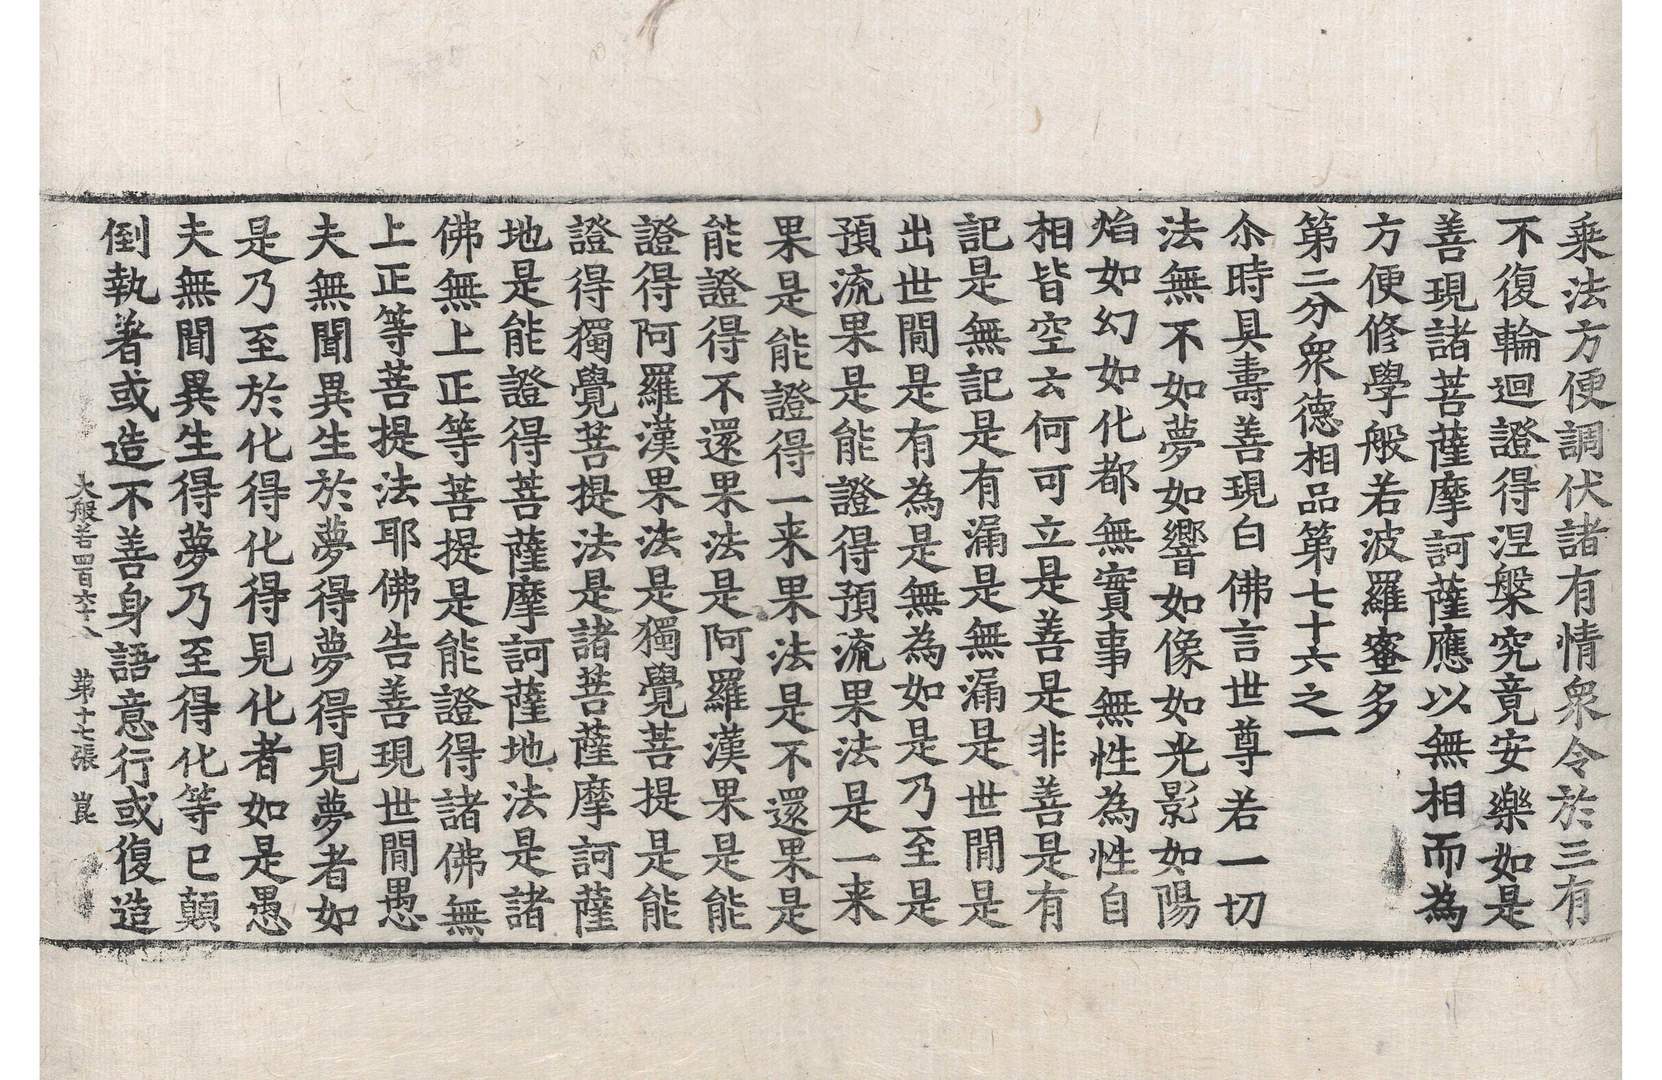 乘法方便調伏諸有情衆令於三有
不復輪迴證得涅槃究竟安樂如是
善現諸菩薩摩訶薩應以無相而為
方便修學般若波羅蜜多
第二分衆德相品第七十六之一
尒時具壽善現白佛言世尊若一切
法無不如夢如響如像如光影如陽
焰如幻如化都無實事無性為性自
相皆空云何可立是善是非善是有
記是無記是有漏是無漏是世間是
出世間是有為是無為如是乃至是
預流果是能證得預流果法是一来
果是能證得一来果法是不還果是
能證得不還果法是阿羅漢果是能
證得阿羅漢果法是獨覺菩提是能
證得獨覺菩提法是諸菩薩摩訶薩
地是能證得菩薩摩訶薩地法是諸
佛無上正等菩提是能證得諸佛無
上正等菩提法耶佛告善現世間愚
夫無聞異生於夢得夢得見夢者如
是乃至於化得化得見化者如是愚
夫無聞異生得夢乃至得化等已顛
倒執著或造不善身語意行或復造
大般若四百六十八 第十七張 崑